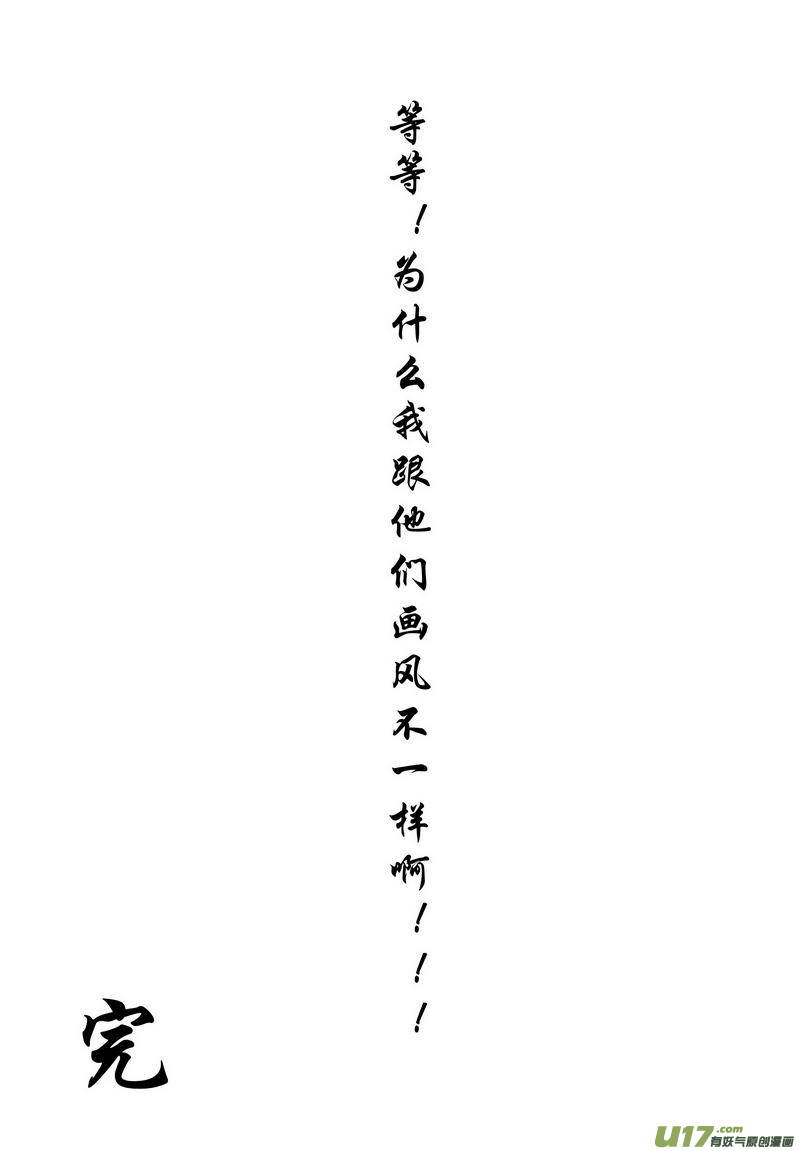 等等！为什么我跟他们画风不一样啊！！！
完
U17.com
有妖气原创漫画